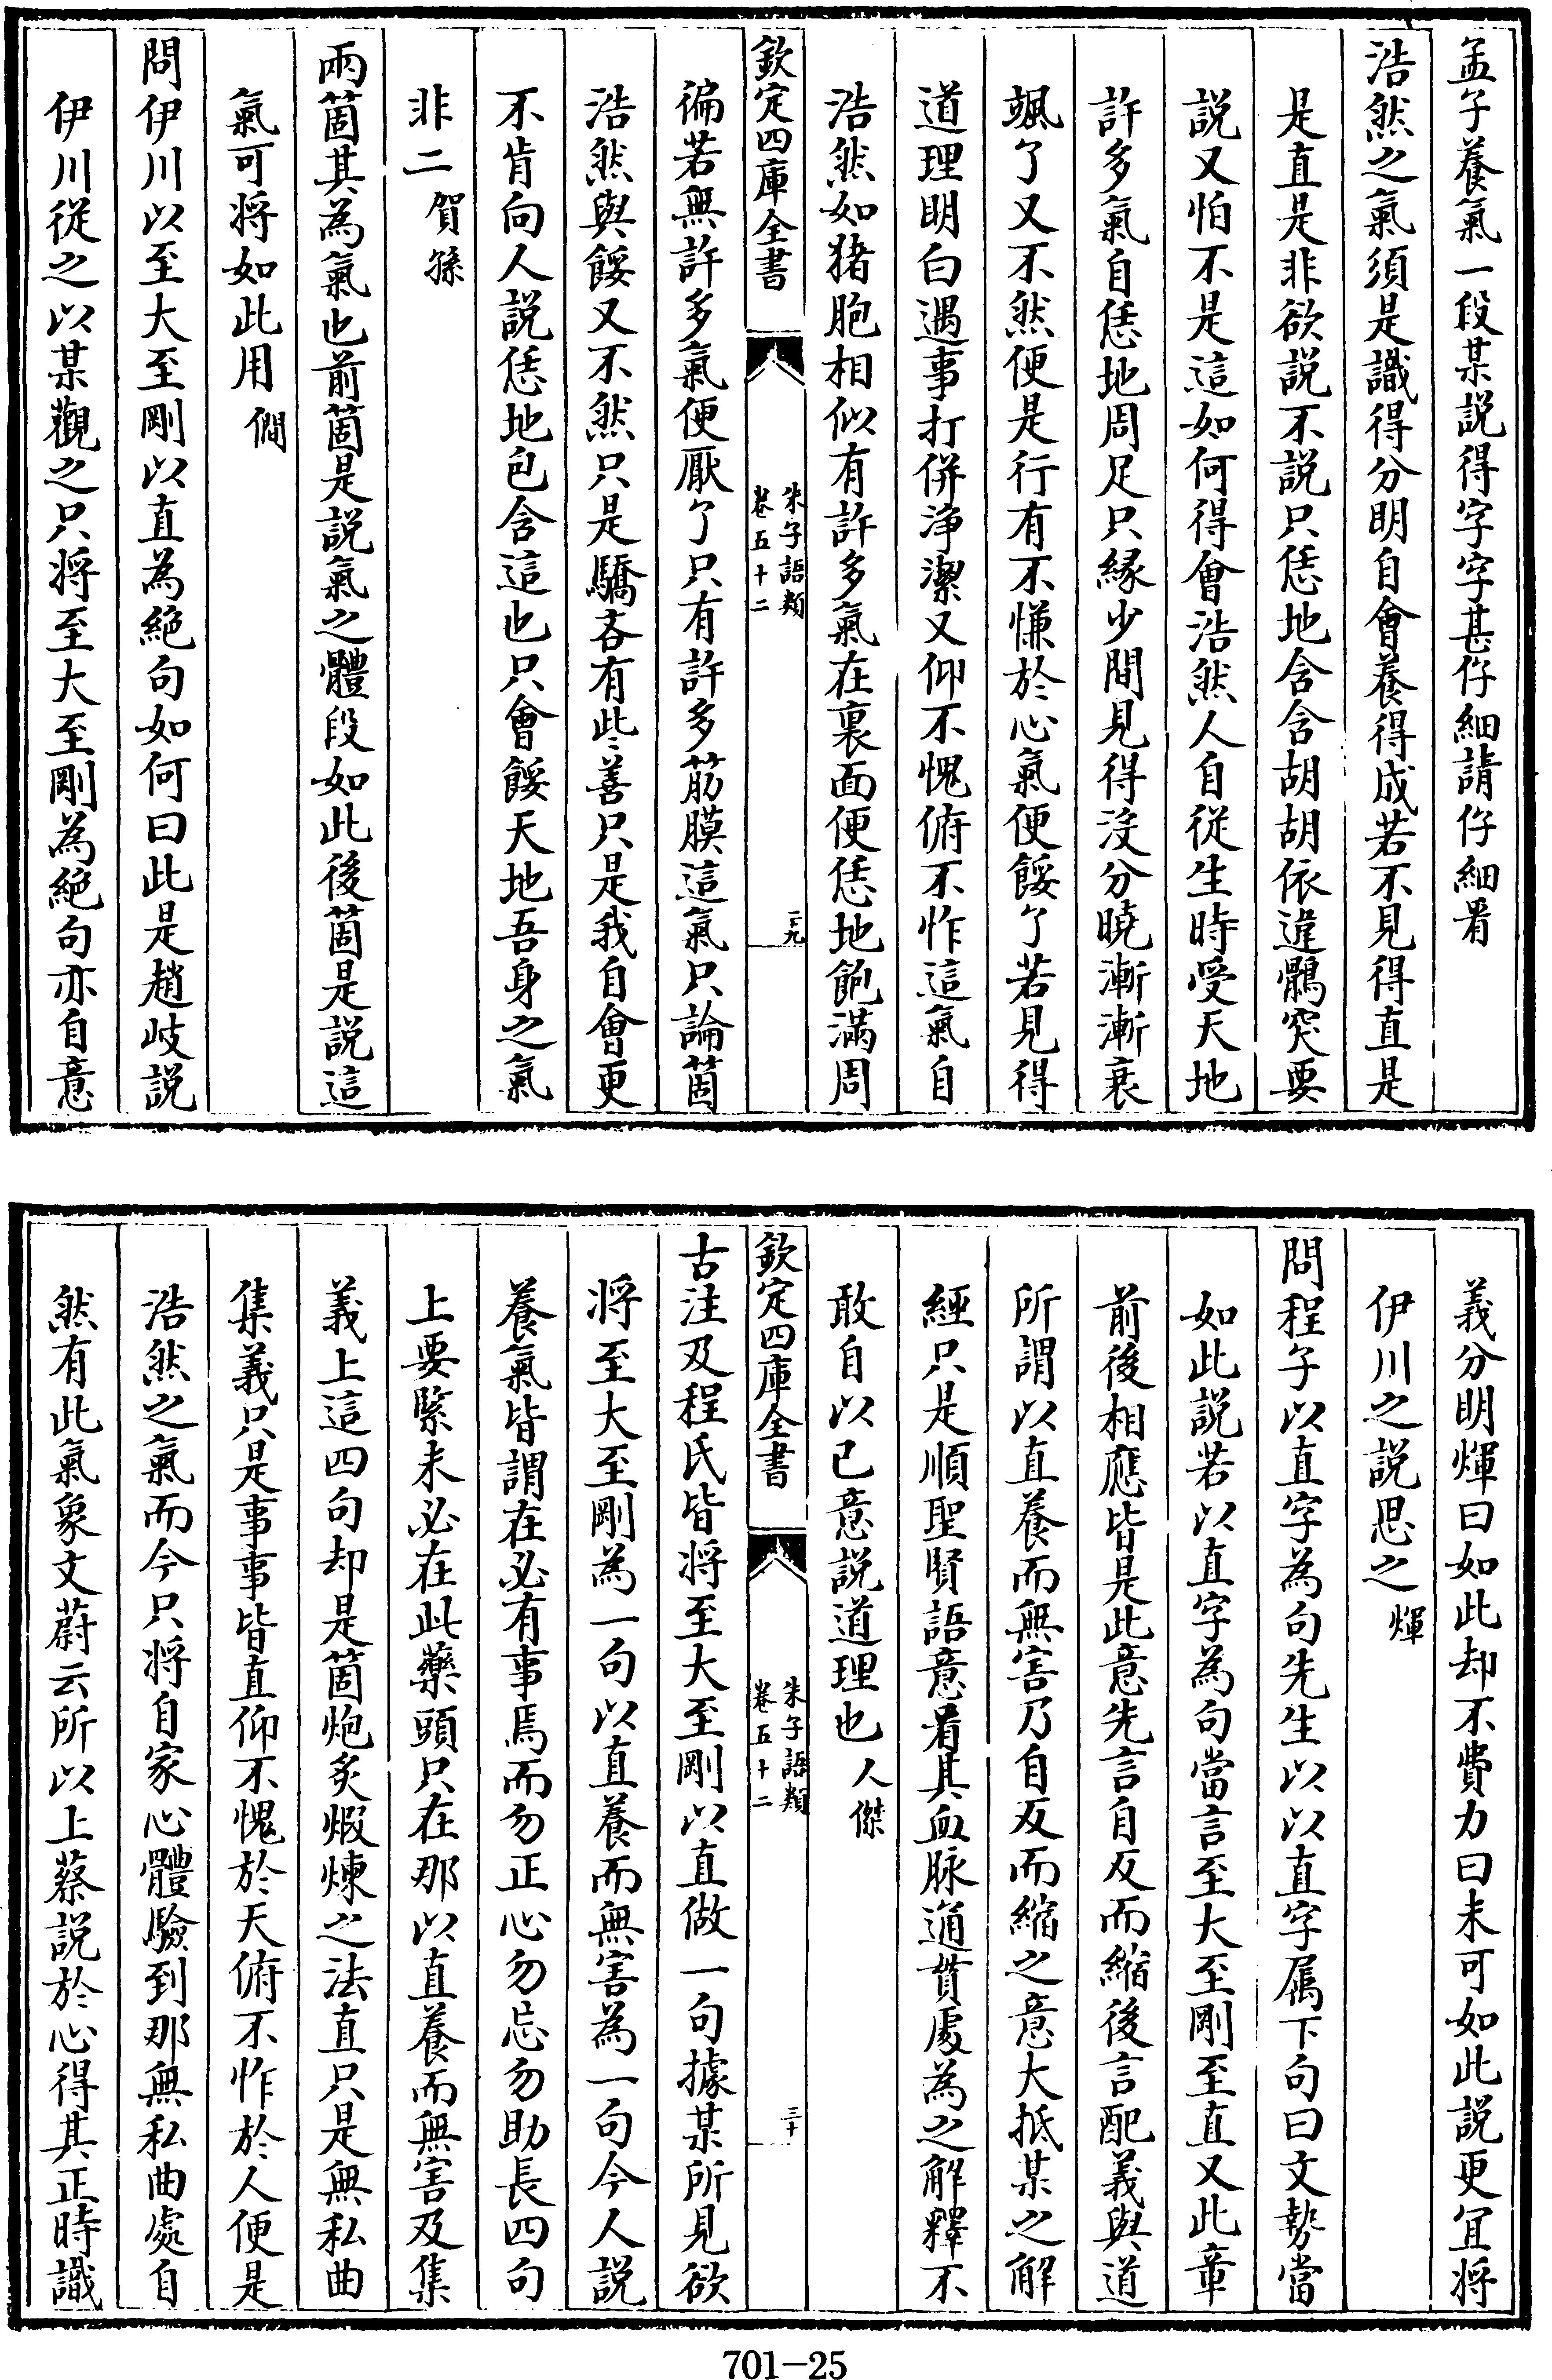 孟子養氣一段某説得字字甚仔細請仔細看
浩然之氣須是識得分明自會養得成若不見得直是
是直是非欲説不説只恁地含含胡胡依違鶻突要
説又怕不是這如何得會浩然人自從生時受天地
許多氣自恁地周足只緣少間見得沒分曉漸漸衰
颯了又不然便是行有不慊於心氣便餒了若見得
道理明白遇事打併淨潔又仰不愧俯不怍這氣自
浩然如猪胞相似有許多氣在裏面便恁地飽滿周
欽定四庫全書
朱子語類
卷五十二
二十九
徧若無許多氣便厭了只有許多筋膜這氣只論箇
浩然與餒又不然只是驕吝有些善只是我自會更
不肯向人説恁地包含這也只會餒天地吾身之氣
非二賀孫
兩箇其為氣也前箇是説氣之體段如此後箇是説這
氣可將如此用僩
問伊川以至大至剛以直為絶句如何曰此是趙岐説
伊川從之以某觀之只將至大至剛為絶句亦自意
義分明煇曰如此却不費力曰未可如此説更宜將
伊川之説思之煇
問程子以直字為句先生以以直字屬下句曰文勢當
如此説若以直字為句當言至大至剛至直又此章
前後相應皆是此意先言自反而縮後言配義與道
所謂以直養而無害乃自反而縮之意大抵某之解
經只是順聖賢語意看其血脉通貫處為之解釋不
敢自以已意説道理也人傑
欽定四庫全書
朱子語類
卷五十二
三十
古注及程氏皆將至大至剛以直做一句據某所見欲
將至大至剛為一句以直養而無害為一句今人説
養氣皆謂在必有事焉而勿正心勿忘勿助長四句
上要緊未必在此藥頭只在那以直養而無害及集
義上這四句却是箇炮炙煅煉之法直只是無私曲
集義只是事事皆直仰不愧於天俯不怍於人便是
浩然之氣而今只將自家心體驗到那無私曲處自
然有此氣象文蔚云所以上蔡説於心得其正時識
701-25